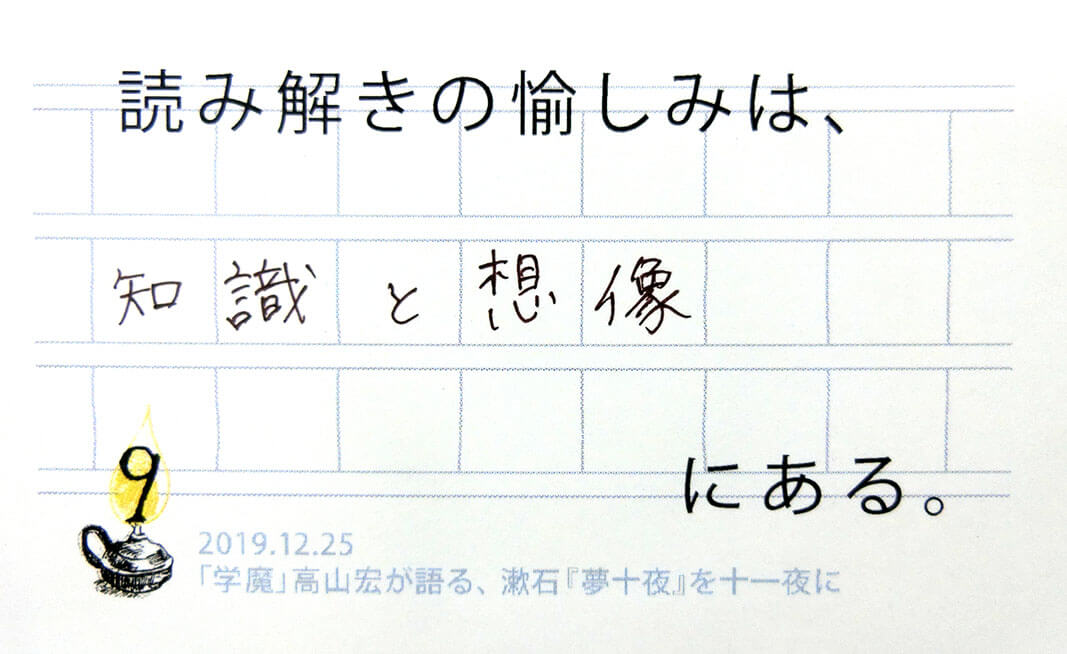 読み解きの愉しみは、
知識と想像
にある。
9
2019.12.25
「学魔」高山宏が語る、漱石『夢十夜』を十一夜に